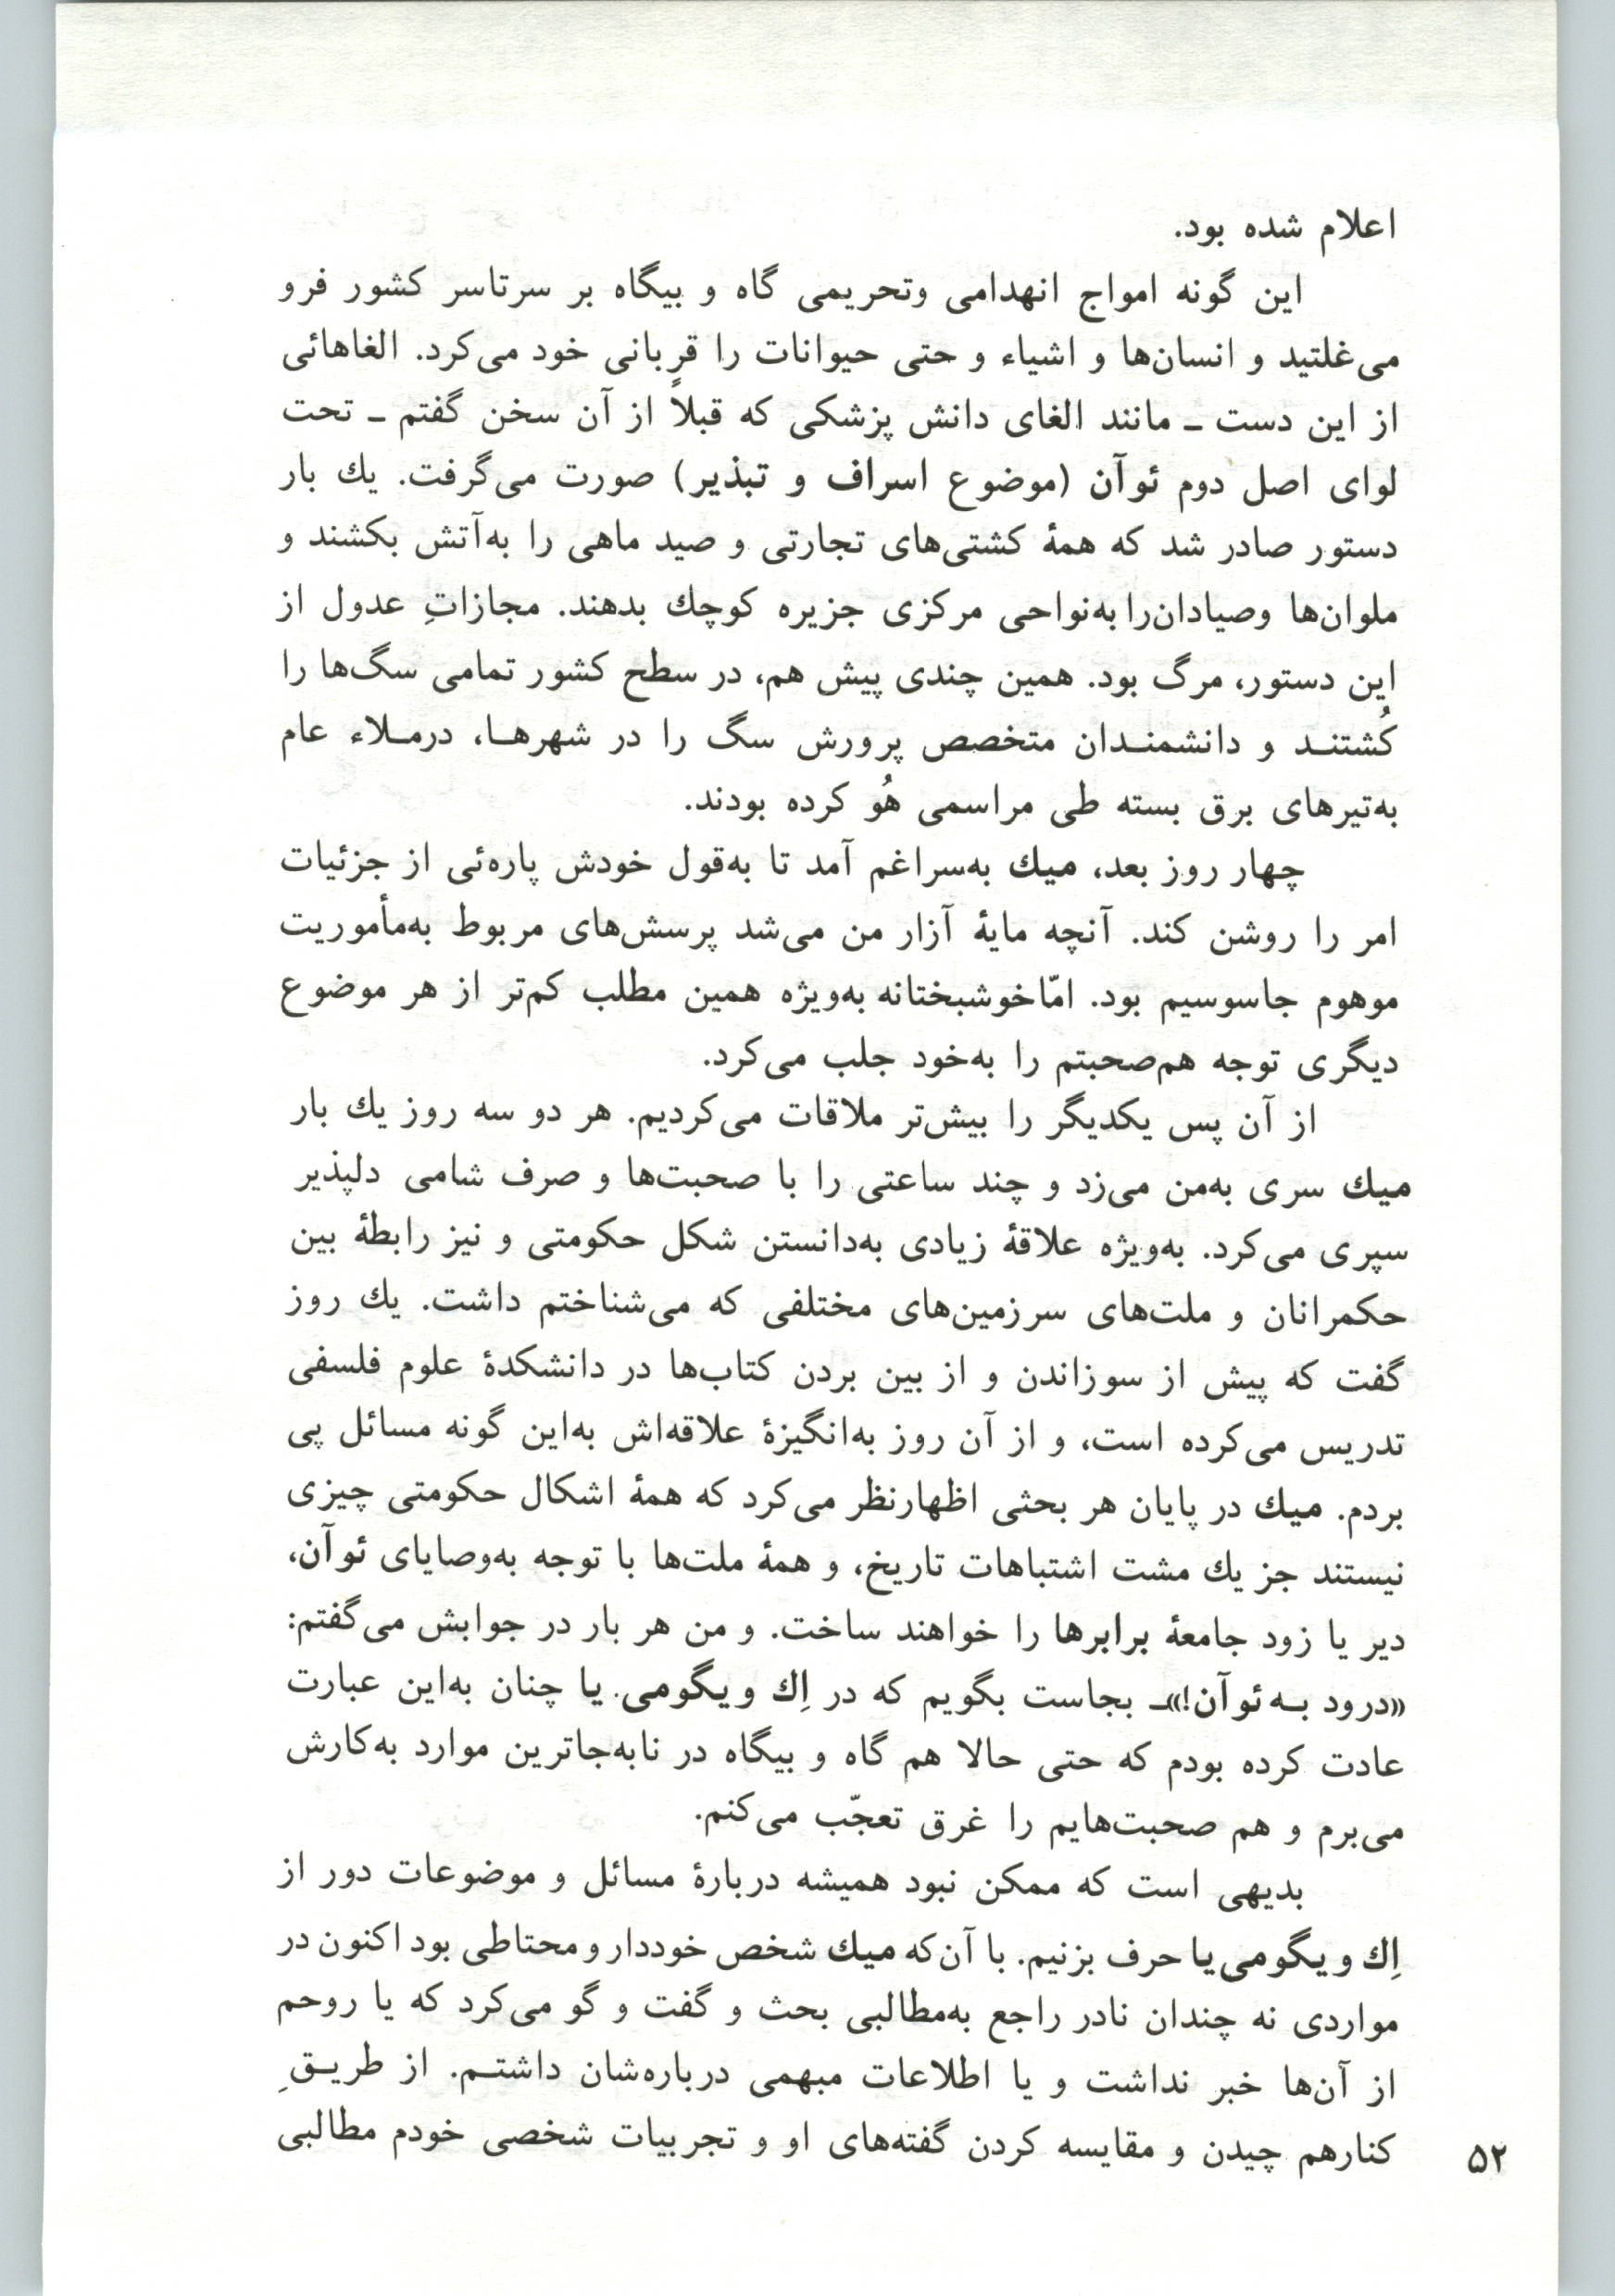 اعلام شده بود.
این گونه امواج انهدامی وتحریمی گاه و بیگاه بر سرتاسر کشور فرو
می‌غلتید و انسان‌ها و اشیاء و حتی حیوانات را قربانی خود می‌کرد. الغاهائی
از این دست ـ مانند الغای دانش پزشکی که قبلاً از آن سخن گفتم ـ تحت
لوای اصل دوم ئوآن (موضوع اسراف و تبذیر) صورت می‌گرفت. یك بار
دستور صادر شد که همهٔ کشتی‌های تجارتی و صید ماهی را به‌آتش بکشند و
ملوان‌ها وصیادان‌را به‌نواحی مرکزی جزیره کوچك بدهند. مجازاتِ عدول از
این دستور، مرگ بود. همین چندی پیش هم، در سطح کشور تمامی سگ‌ها را
کُشتنـد و دانشمنـدان متخصص پرورش سگ را در شهرهـا، درمـلاء عام
به‌تیرهای برق بسته طی مراسمی هُو کرده بودند.
چهار روز بعد، میك به‌سراغم آمد تا به‌قول خودش پاره‌ئی از جزئیات
امر را روشن کند. آنچه مایهٔ آزار من می‌شد پرسش‌های مربوط به‌مأموریت
موهوم جاسوسیم بود. امّاخوشبختانه به‌ویژه همین مطلب کم‌تر از هر موضوع
دیگری توجه هم‌صحبتم را به‌خود جلب می‌کرد.
از آن پس یکدیگر را بیش‌تر ملاقات می‌کردیم. هر دو سه روز یك بار
میك سری به‌من می‌زد و چند ساعتی را با صحبت‌ها و صرف شامی دلپذیر
سپری می‌کرد. به‌ویژه علاقهٔ زیادی به‌دانستن شکل حکومتی و نیز رابطهٔ بین
حکمرانان و ملت‌های سرزمین‌های مختلفی که می‌شناختم داشت. یك روز
گفت که پیش از سوزاندن و از بین بردن کتاب‌ها در دانشکدهٔ علوم فلسفی
تدریس می‌کرده است، و از آن روز به‌انگیزهٔ علاقه‌اش به‌این گونه مسائل پی
بردم. میك در پایان هر بحثی اظهارنظر می‌کرد که همهٔ اشکال حکومتی چیزی
نیستند جز یك مشت اشتباهات تاریخ، و همهٔ ملت‌ها با توجه به‌وصایای ئوآن،
دیر یا زود جامعهٔ برابرها را خواهند ساخت. و من هر بار در جوابش می‌گفتم:
«درود بـه ئوآن!»ـ بجاست بگویم که در اِك ویگومی. یا چنان به‌این عبارت
عادت کرده بودم که حتی حالا هم گاه و بیگاه در نابه‌جاترین موارد به‌کارش
می‌برم و هم صحبت‌هایم را غرق تعجّب می‌کنم.
بدیهی است که ممکن نبود همیشه دربارهٔ مسائل و موضوعات دور از
اِك ویگومی‌یا حرف بزنیم. با آن‌که میك شخص خوددار و محتاطی بود اکنون در
مواردی نه چندان نادر راجع به‌مطالبی بحث و گفت و گو می‌کرد که یا روحم
از آن‌ها خبر نداشت و یا اطلاعات مبهمی درباره‌شان داشتـم. از طریـقِ
کنارهم چیدن و مقایسه کردن گفته‌های او و تجربیات شخصی خودم مطالبی
۵۲